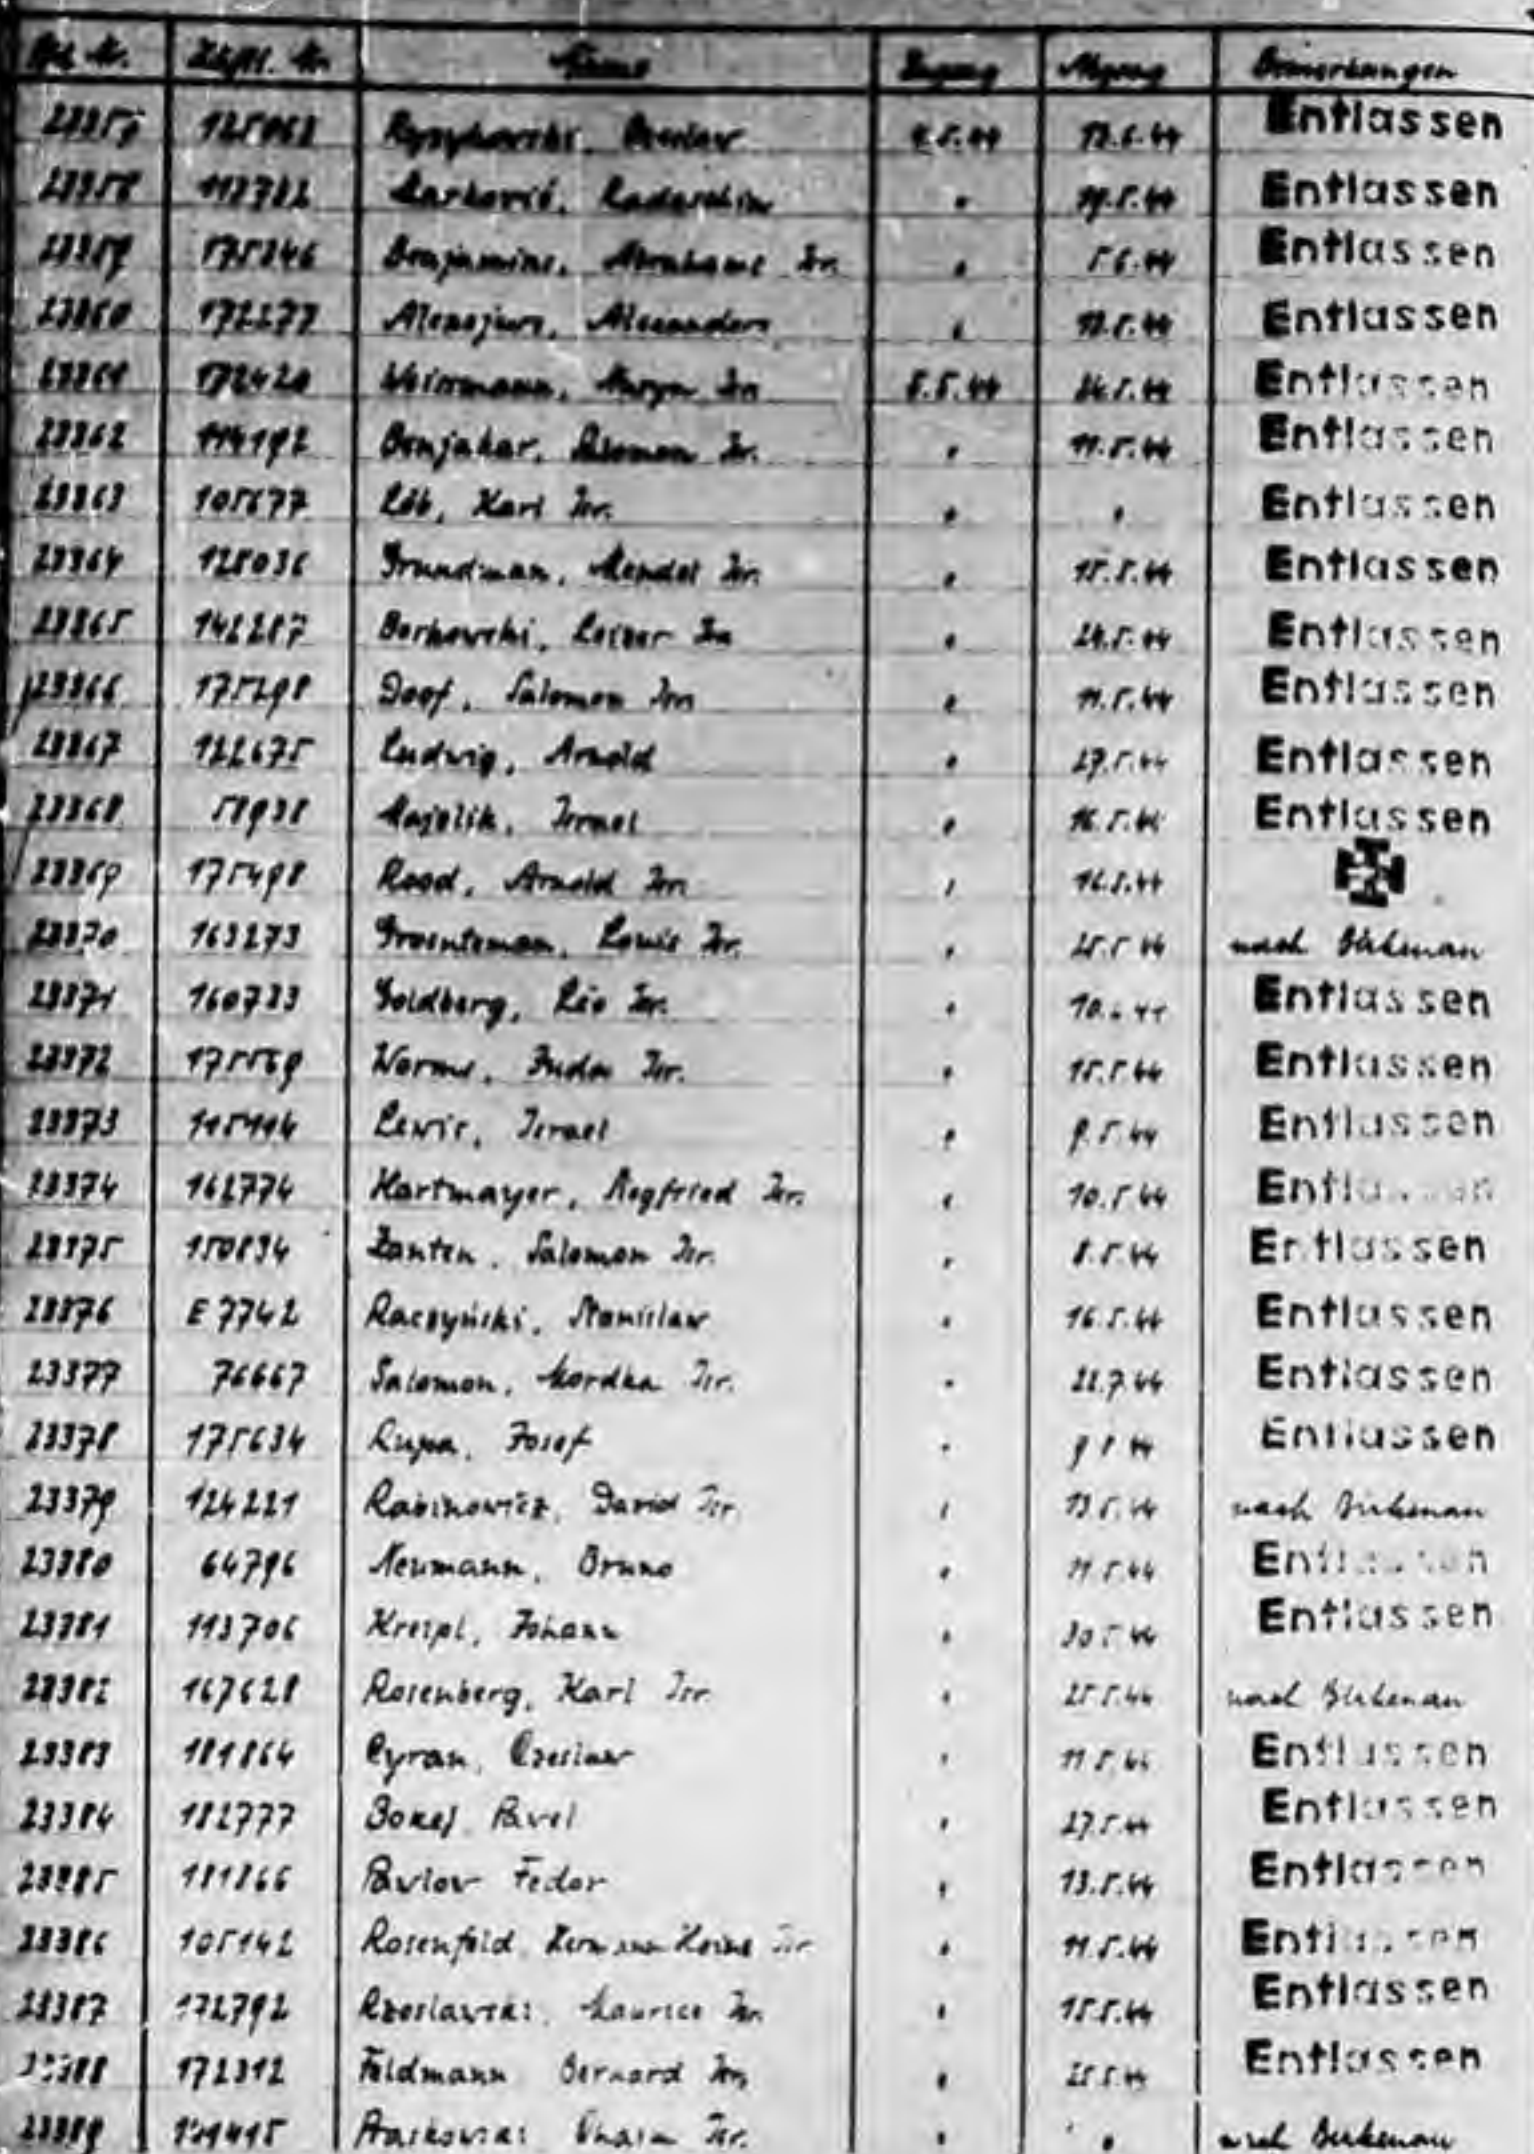 Lfd. Nr. Häftl. Nr. Name Zugang Abgang Bemerkungen
23357 125063 4.5.44 13.6.44 Entlassen
23358 113722 Marković, " 19.5.44 Entlassen
23359 175246 Benjamins, Abraham Isr. " 5.6.44 Entlassen
23360 172277 " 13.5.44 Entlassen
23361 172420 5.5.44 26.5.44 Entlassen
23362 114192 Benjakar, Salomon Isr. " 11.5.44 Entlassen
23363 105677 Löb, Karl Isr. " " Entlassen
23364 128036 Grundman, Mendel Isr. " 15.5.44 Entlassen
23365 142287 Borkowski, Leiser Isr. " 24.5.44 Entlassen
23366 175298 Doof, Salomon Isr. " 11.5.44 Entlassen
23367 122675 Ludwig, Arnold " 27.5.44 Entlassen
23368 58938 Majzlik, Israel " 16.5.44 Entlassen
23369 175498 Rood, Arnold Isr. " 16.5.44
23370 163273 Groenteman, Louis Isr. " 25.5.44 nach Birkenau
23371 160733 Goldberg, Léo Isr. " 10.6.44 Entlassen
23372 175569 Worms, Juda Isr. " 15.5.44 Entlassen
23373 115114 Lewis, Israel " 9.5.44 Entlassen
23374 162774 Hartmayer, Siegfried Isr. " 10.5.44 Entlassen
23375 150834 Zanten, Salomon Isr. " 8.5.44 Entlassen
23376 E 7742 Raczyński, Stanislaw " 16.5.44 Entlassen
23377 76667 Salomon, Mordka Isr. " 22.7.44 Entlassen
23378 175634 Rupa, Josef " 9.5.44 Entlassen
23379 124221 Rabinowicz, David Isr. " 13.5.44 nach Birkenau
23380 64796 Neumann, Bruno " 11.5.44 Entlassen
23381 113706 Kreipl, Johann " 30.5.44 Entlassen
23382 167628 Rosenberg, Karl Isr. " 25.5.44 nach Birkenau
23383 181864 Cyran, Czeslaw " 11.5.44 Entlassen
23384 182777 Pavel " 27.5.44 Entlassen
23385 181866 Pavlov Fedor " 13.5.44 Entlassen
23386 105142 Rosenfeld, Hermann Heinz Isr. " 11.5.44 Entlassen
23387 172792 Maurice Isr. " 15.5.44 Entlassen
23388 172312 Feldmann Bernard Isr. " 25.5.44 Entlassen
23389 Isr. " " nach Birkenau